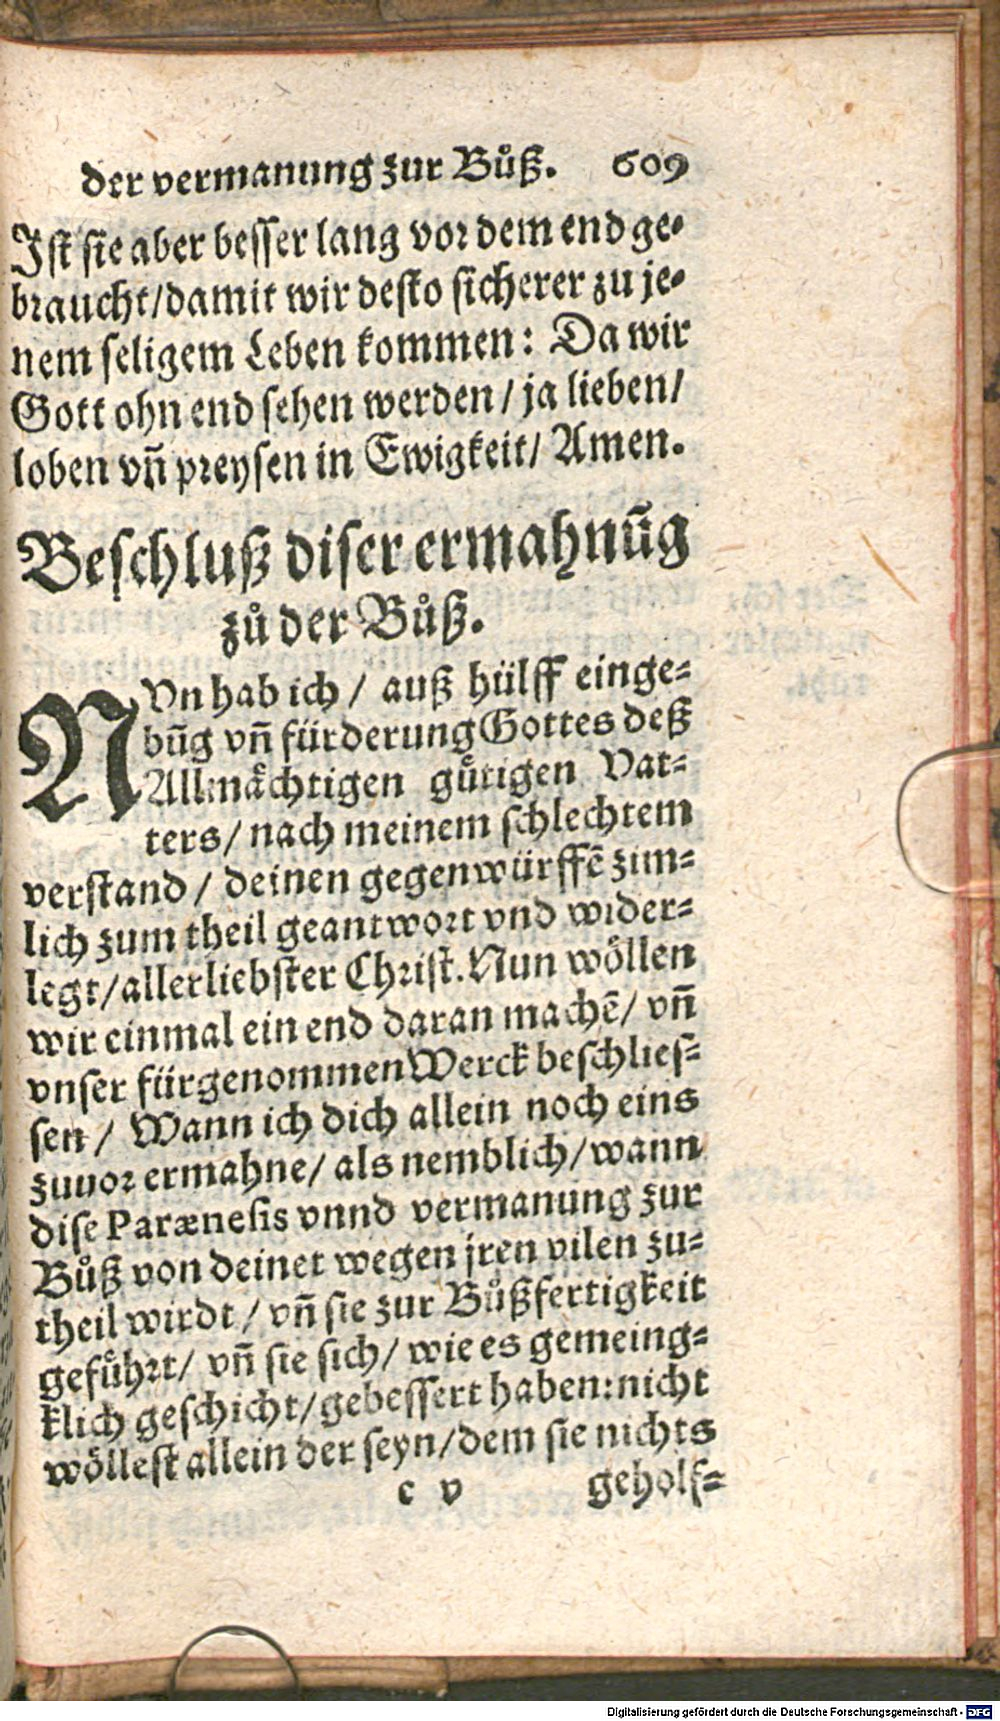 der vermanung zur Bůß. 609
Ist sie aber besser lang vor dem end ge-
braucht/damit wir desto sicherer zu je-
nem seligem Leben kommen: Da wir
Gott ohn end sehen werden/ ja lieben/
loben vñ preysen in Ewigkeit/ Amen.
Beschluß diser ermahnũg
zů der Bůß.
NVn hab ich / auß hülff einge-
bũg vñ fürderung Gottes deß
Allmächtigen gůtigen Vat-
ters/ nach meinem schlechtem
verstand / deinen gegenwürffẽ zim-
lich zum theil geantwort vnd wider-
legt/allerliebster Christ. Nun wöllen
wir einmal ein end daran machẽ/ vñ
vnser fürgenommen Werck beschlies-
sen / Wann ich dich allein noch eins
zuuor ermahne/ als nemblich/wann
dise Parænesis vnnd vermanung zur
Bůß von deinet wegen jren vilen zu-
theil wirdt / vñ sie zur Bůßfertigkeit
gefůhrt/ vñ sie sich/ wie es gemeing-
klich geschicht/gebessert haben:nicht
wöllest allein der seyn/dem sie nichts
c v geholf-
Digitalisierung gefördert durch die Deutsche Forschungsgemeinschaft - DFG